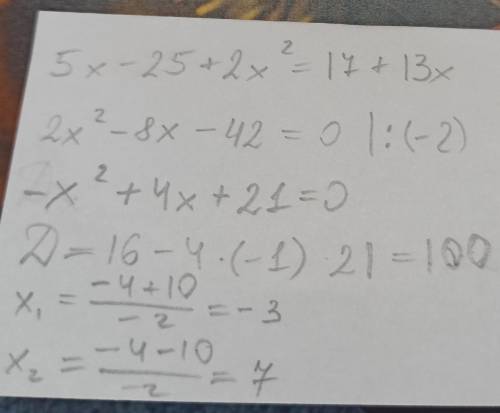 5x - 25 + 2x² = 17 + 13x
2x² - 8x - 42 = 0 | : (-2)
-x² + 4x + 21 = 0
D = 16 - 4 · (-1) · 21 = 100
x₁ = (-4 + 10)/(-2) = -3
x₂ = (-4 - 10)/(-2) = 7